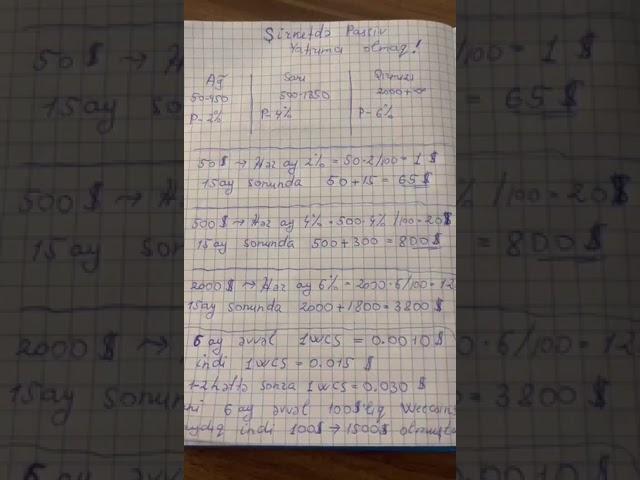 Şirkətdə Passiv
Yatırımcı olmaq!
Ağ Sarı Qırmızı
50-450 500-1950 2000+∞
P-2% P-4% P-6%
50$ → Hər ay 2% = 50·2/100 = 1$
15ay sonunda 50+15 = 65$
500$ → Hər ay 4% = 500·4%/100=20$
15ay sonunda 500+300 = 800$
2000$ → Hər ay 6% = 2000·6/100=12
15ay sonunda 2000+1800=3800$
6 ay əvvəl 1WCS = 0.0010$
indi 1WCS = 0.015$
1-2 həftə sonra 1WCS=0.030$
6 ay əvvəl 100$'lıq
indi 100$ → 1500$